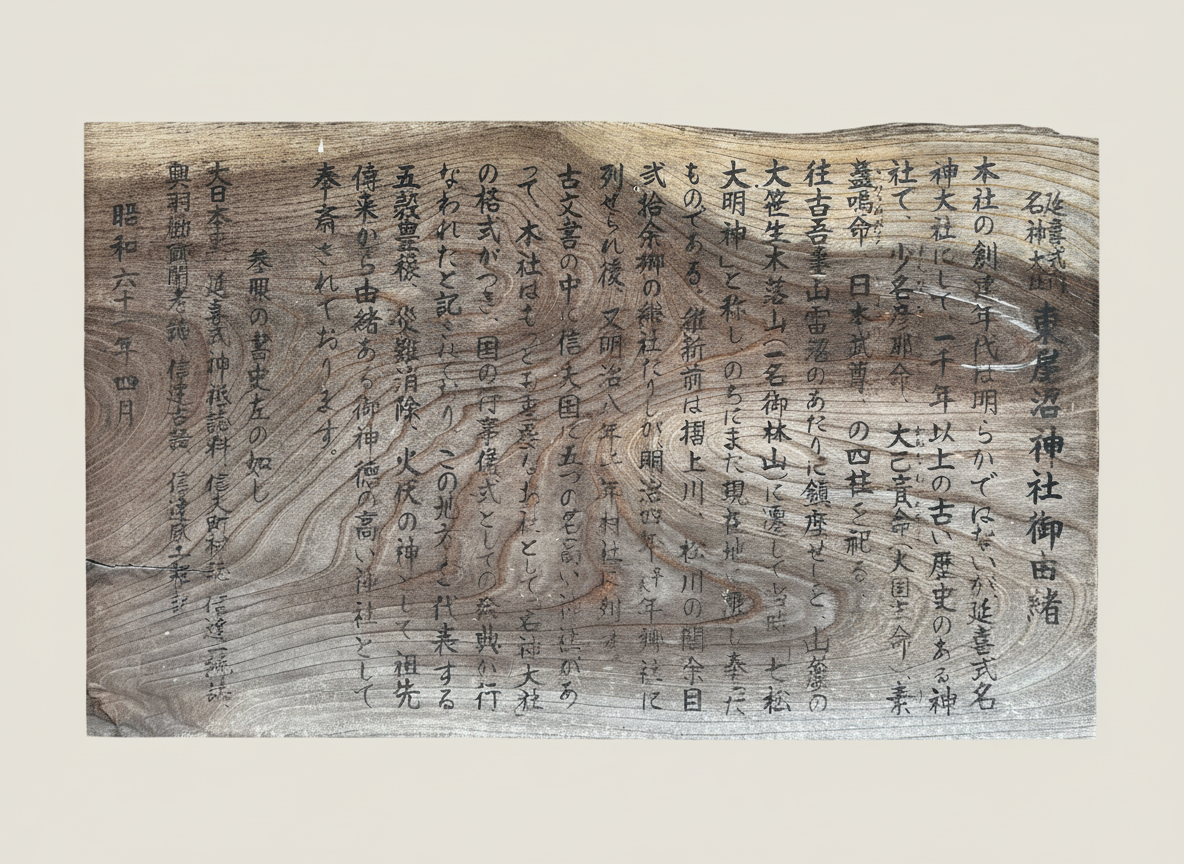 延喜式
名神大社
東屋沼神社御由緒
本社の創建年代は明らかではないが延喜式名
神大社にして一千年以上の古い歴史のある神
社で、少名彦那命、大己貴命(大国主命)、素
盞嗚命、日本武尊、の四柱を祀る。
往古吾妻山雷沼のあたりに鎮座せしと、山麓の
大笹生木落山(一名御林山)に遷して当時、七松
大明神」と称し のちにまた現在地に遷し奉った
ものである。維新前は摺上川、松川の間余目
弐拾余郷の総社たりしが、明治四年
列せられ後、又明治八年
古文書の中に信夫国に五つの名高い神社があ
って、本社はもっとも重要な お社として、名神大社
の格式がつき、国の行事儀式としての祭典が行
なわれたと記されており、この地方を代表する
五穀豊穣、災難消除、火伏の神として祖先
傳来から由緒ある御神徳の高い神社として
奉斎されております。
参照の書史左の如し
大日本史 延喜式神祇誌料
興羽 聞老誌 信達古語
昭和六十一年四月